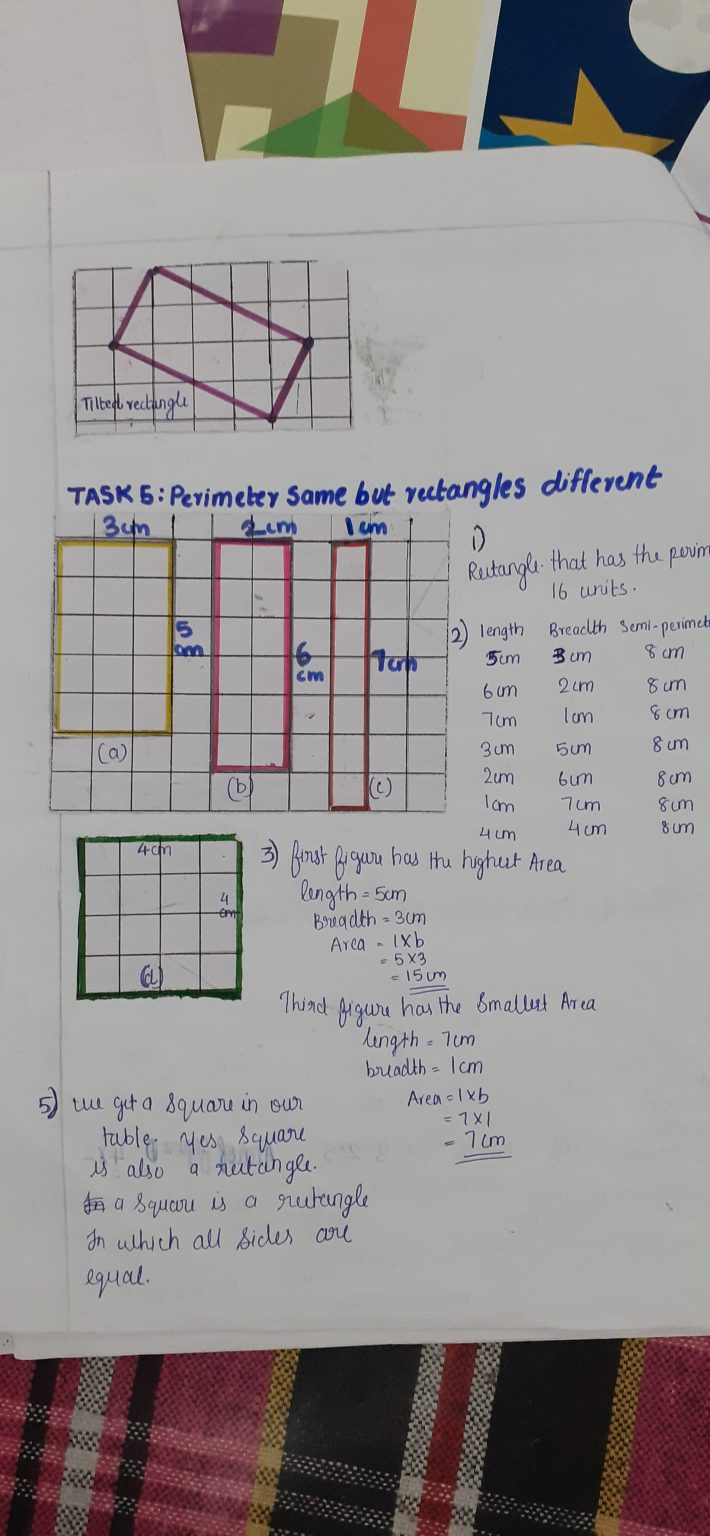 Tilted rectangle
TASK 5: Perimeter same but rectangles different
3cm 2cm 1cm
5 cm
6 cm
7cm
(a)
(b)
(c)
1)
Rectangle that has the perim
16 units.
2) length Breadth Semi-perimet
5cm 3cm 8cm
6cm 2cm 8cm
7cm 1cm 8cm
3cm 5cm 8cm
2cm 6cm 8cm
1cm 7cm 8cm
4cm 4cm 8cm
4cm
4 cm
(d)
3) first figure has the highest Area
length = 5cm
Breadth = 3cm
Area = l×b
= 5×3
= 15cm
Third figure has the Smallest Area
length = 7cm
breadth = 1cm
Area = l×b
= 7×1
= 7cm
5) we get a Square in our
table. yes Square
is also a rectangle.
a Square is a rectangle
In which all sides are
equal.